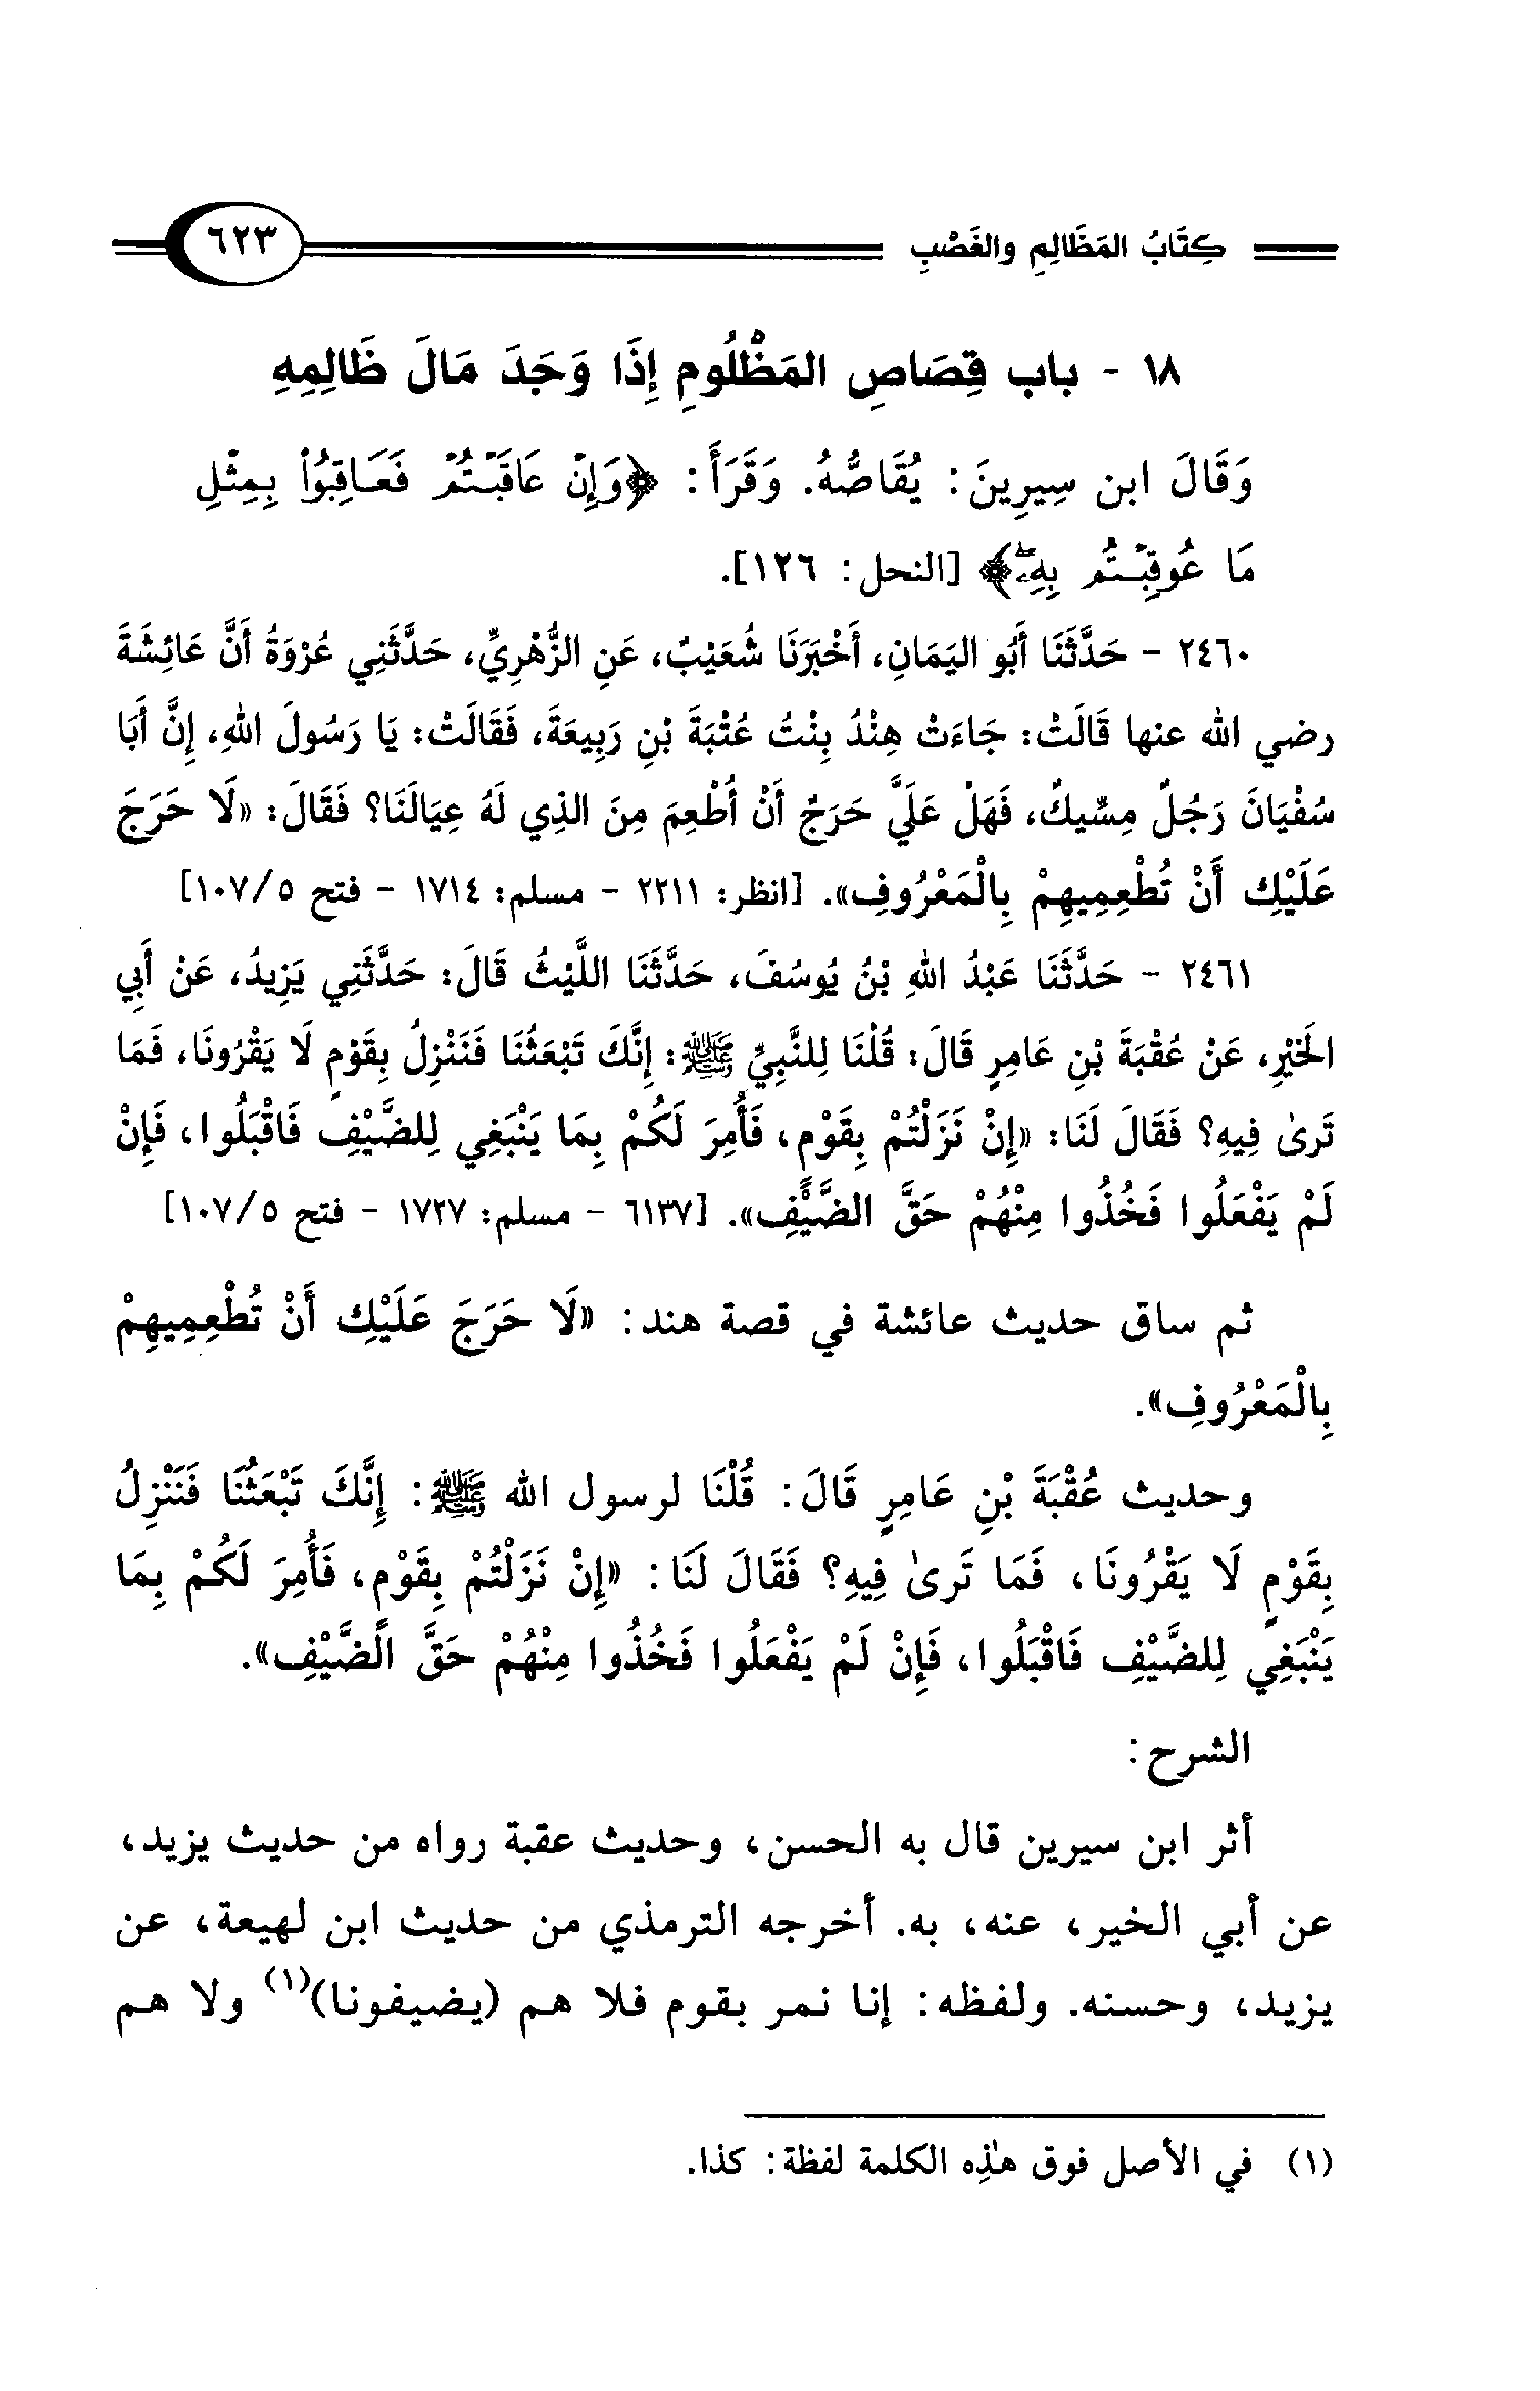 كِتَابُ المَظَالِمِ والغَصْبِ ٦٢٣
١٨ - باب قِصَاصِ المَظْلُومِ إِذَا وَجَدَ مَالَ ظَالِمِهِ
وَقَالَ ابن سِيرِينَ: يُقَاصُّهُ. وَقَرَأَ: ﴿وَإِنْ عَاقَبْتُمْ فَعَاقِبُوا۟ بِمِثْلِ
مَا عُوقِبْتُم بِهِۦ﴾ [النحل: ١٢٦].
٢٤٦٠ - حَدَّثَنَا أَبُو اليَمَانِ، أَخْبَرَنَا شُعَيْبٌ، عَنِ الزُّهْرِيِّ، حَدَّثَنِي عُرْوَةُ أَنَّ عَائِشَةَ
رضي الله عنها قَالَتْ: جَاءَتْ هِنْدُ بِنْتُ عُتْبَةَ بْنِ رَبِيعَةَ، فَقَالَتْ: يَا رَسُولَ اللهِ، إِنَّ أَبَا
سُفْيَانَ رَجُلٌ مِسِّيكٌ، فَهَلْ عَلَيَّ حَرَجٌ أَنْ أُطْعِمَ مِنَ الذِي لَهُ عِيَالَنَا؟ فَقَالَ: «لَا حَرَجَ
عَلَيْكِ أَنْ تُطْعِمِيهِمْ بِالْمَعْرُوفِ». [انظر: ٢٢١١ - مسلم: ١٧١٤ - فتح ٥/١٠٧]
٢٤٦١ - حَدَّثَنَا عَبْدُ اللهِ بْنُ يُوسُفَ، حَدَّثَنَا اللَّيْثُ قَالَ: حَدَّثَنِي يَزِيدُ، عَنْ أَبِي
الخَيْرِ، عَنْ عُقْبَةَ بْنِ عَامِرٍ قَالَ: قُلْنَا لِلنَّبِيِّ ﷺ: إِنَّكَ تَبْعَثُنَا فَنَنْزِلُ بِقَوْمٍ لَا يَقْرُونَا، فَمَا
تَرىٰ فِيهِ؟ فَقَالَ لَنَا: «إِنْ نَزَلْتُمْ بِقَوْمٍ، فَأُمِرَ لَكُمْ بِمَا يَنْبَغِي لِلضَّيْفِ فَاقْبَلُوا، فَإِنْ
لَمْ يَفْعَلُوا فَخُذُوا مِنْهُمْ حَقَّ الضَّيْفِ». [٦١٣٧ - مسلم: ١٧٢٧ - فتح ٥/١٠٧]
ثم ساق حديث عائشة في قصة هند: «لَا حَرَجَ عَلَيْكِ أَنْ تُطْعِمِيهِمْ
بِالْمَعْرُوفِ».
وحديث عُقْبَةَ بْنِ عَامِرٍ قَالَ: قُلْنَا لرسول الله ﷺ: إِنَّكَ تَبْعَثُنَا فَنَنْزِلُ
بِقَوْمٍ لَا يَقْرُونَا، فَمَا تَرىٰ فِيهِ؟ فَقَالَ لَنَا: «إِنْ نَزَلْتُمْ بِقَوْمٍ، فَأُمِرَ لَكُمْ بِمَا
يَنْبَغِي لِلضَّيْفِ فَاقْبَلُوا، فَإِنْ لَمْ يَفْعَلُوا فَخُذُوا مِنْهُمْ حَقَّ الضَّيْفِ».
الشرح:
أثر ابن سيرين قال به الحسن، وحديث عقبة رواه من حديث يزيد،
عن أبي الخير، عنه، به. أخرجه الترمذي من حديث ابن لهيعة، عن
يزيد، وحسنه. ولفظه: إنا نمر بقوم فلا هم (يضيفونا)(١) ولا هم
(١) في الأصل فوق هٰذِه الكلمة لفظة: كذا.